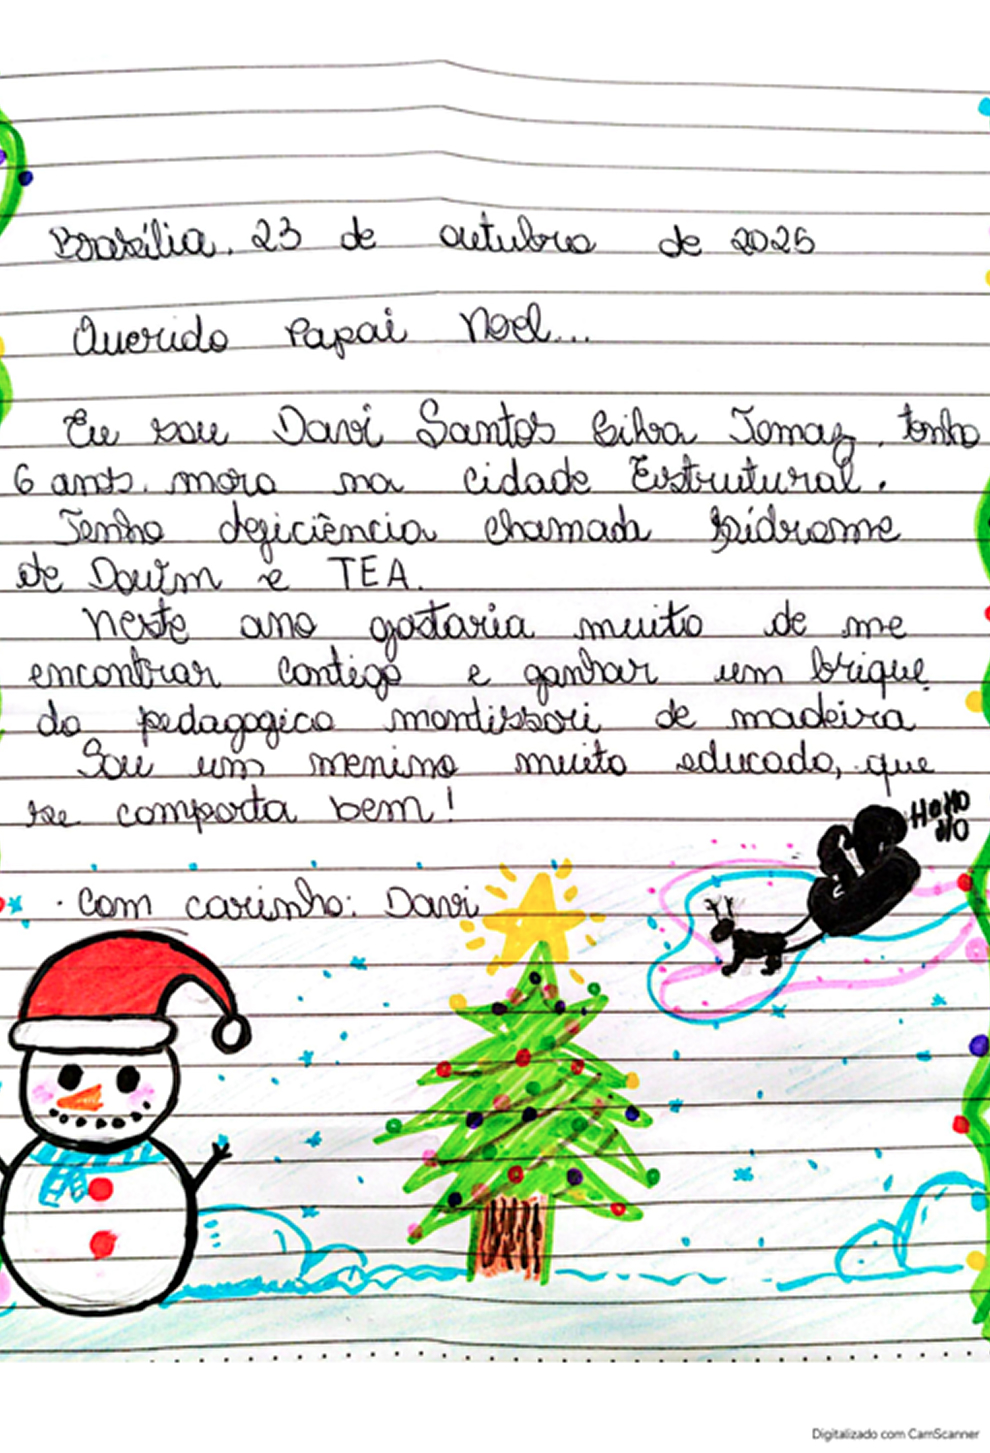 Brasília, 23 de outubro de 2025
Querido Papai Noel...
Eu sou Davi Santos Silva Tomaz, tenho
6 anos. moro na cidade Estrutural.
Tenho deficiência chamada Sídrome
de Douim e TEA.
Neste ano gostaria muito de me
encontrar contigo e ganhar um brique
do pedagogico montissori de madeira
Sou um menino muito educado, que
se comporta bem!
HoHO
HO
. Com carinho: Davi
Digitalizado com CamScanner